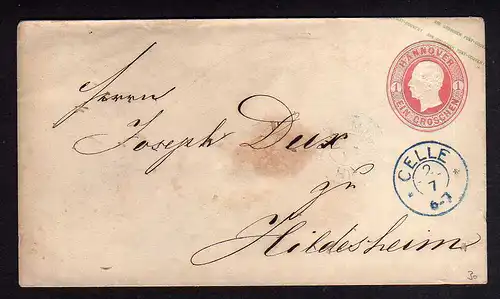 HANNOVER
1 1
EIN GROSCHEN
Herrn
Joseph Dux
zu
Hildesheim
CELLE
2
7
6-7
30